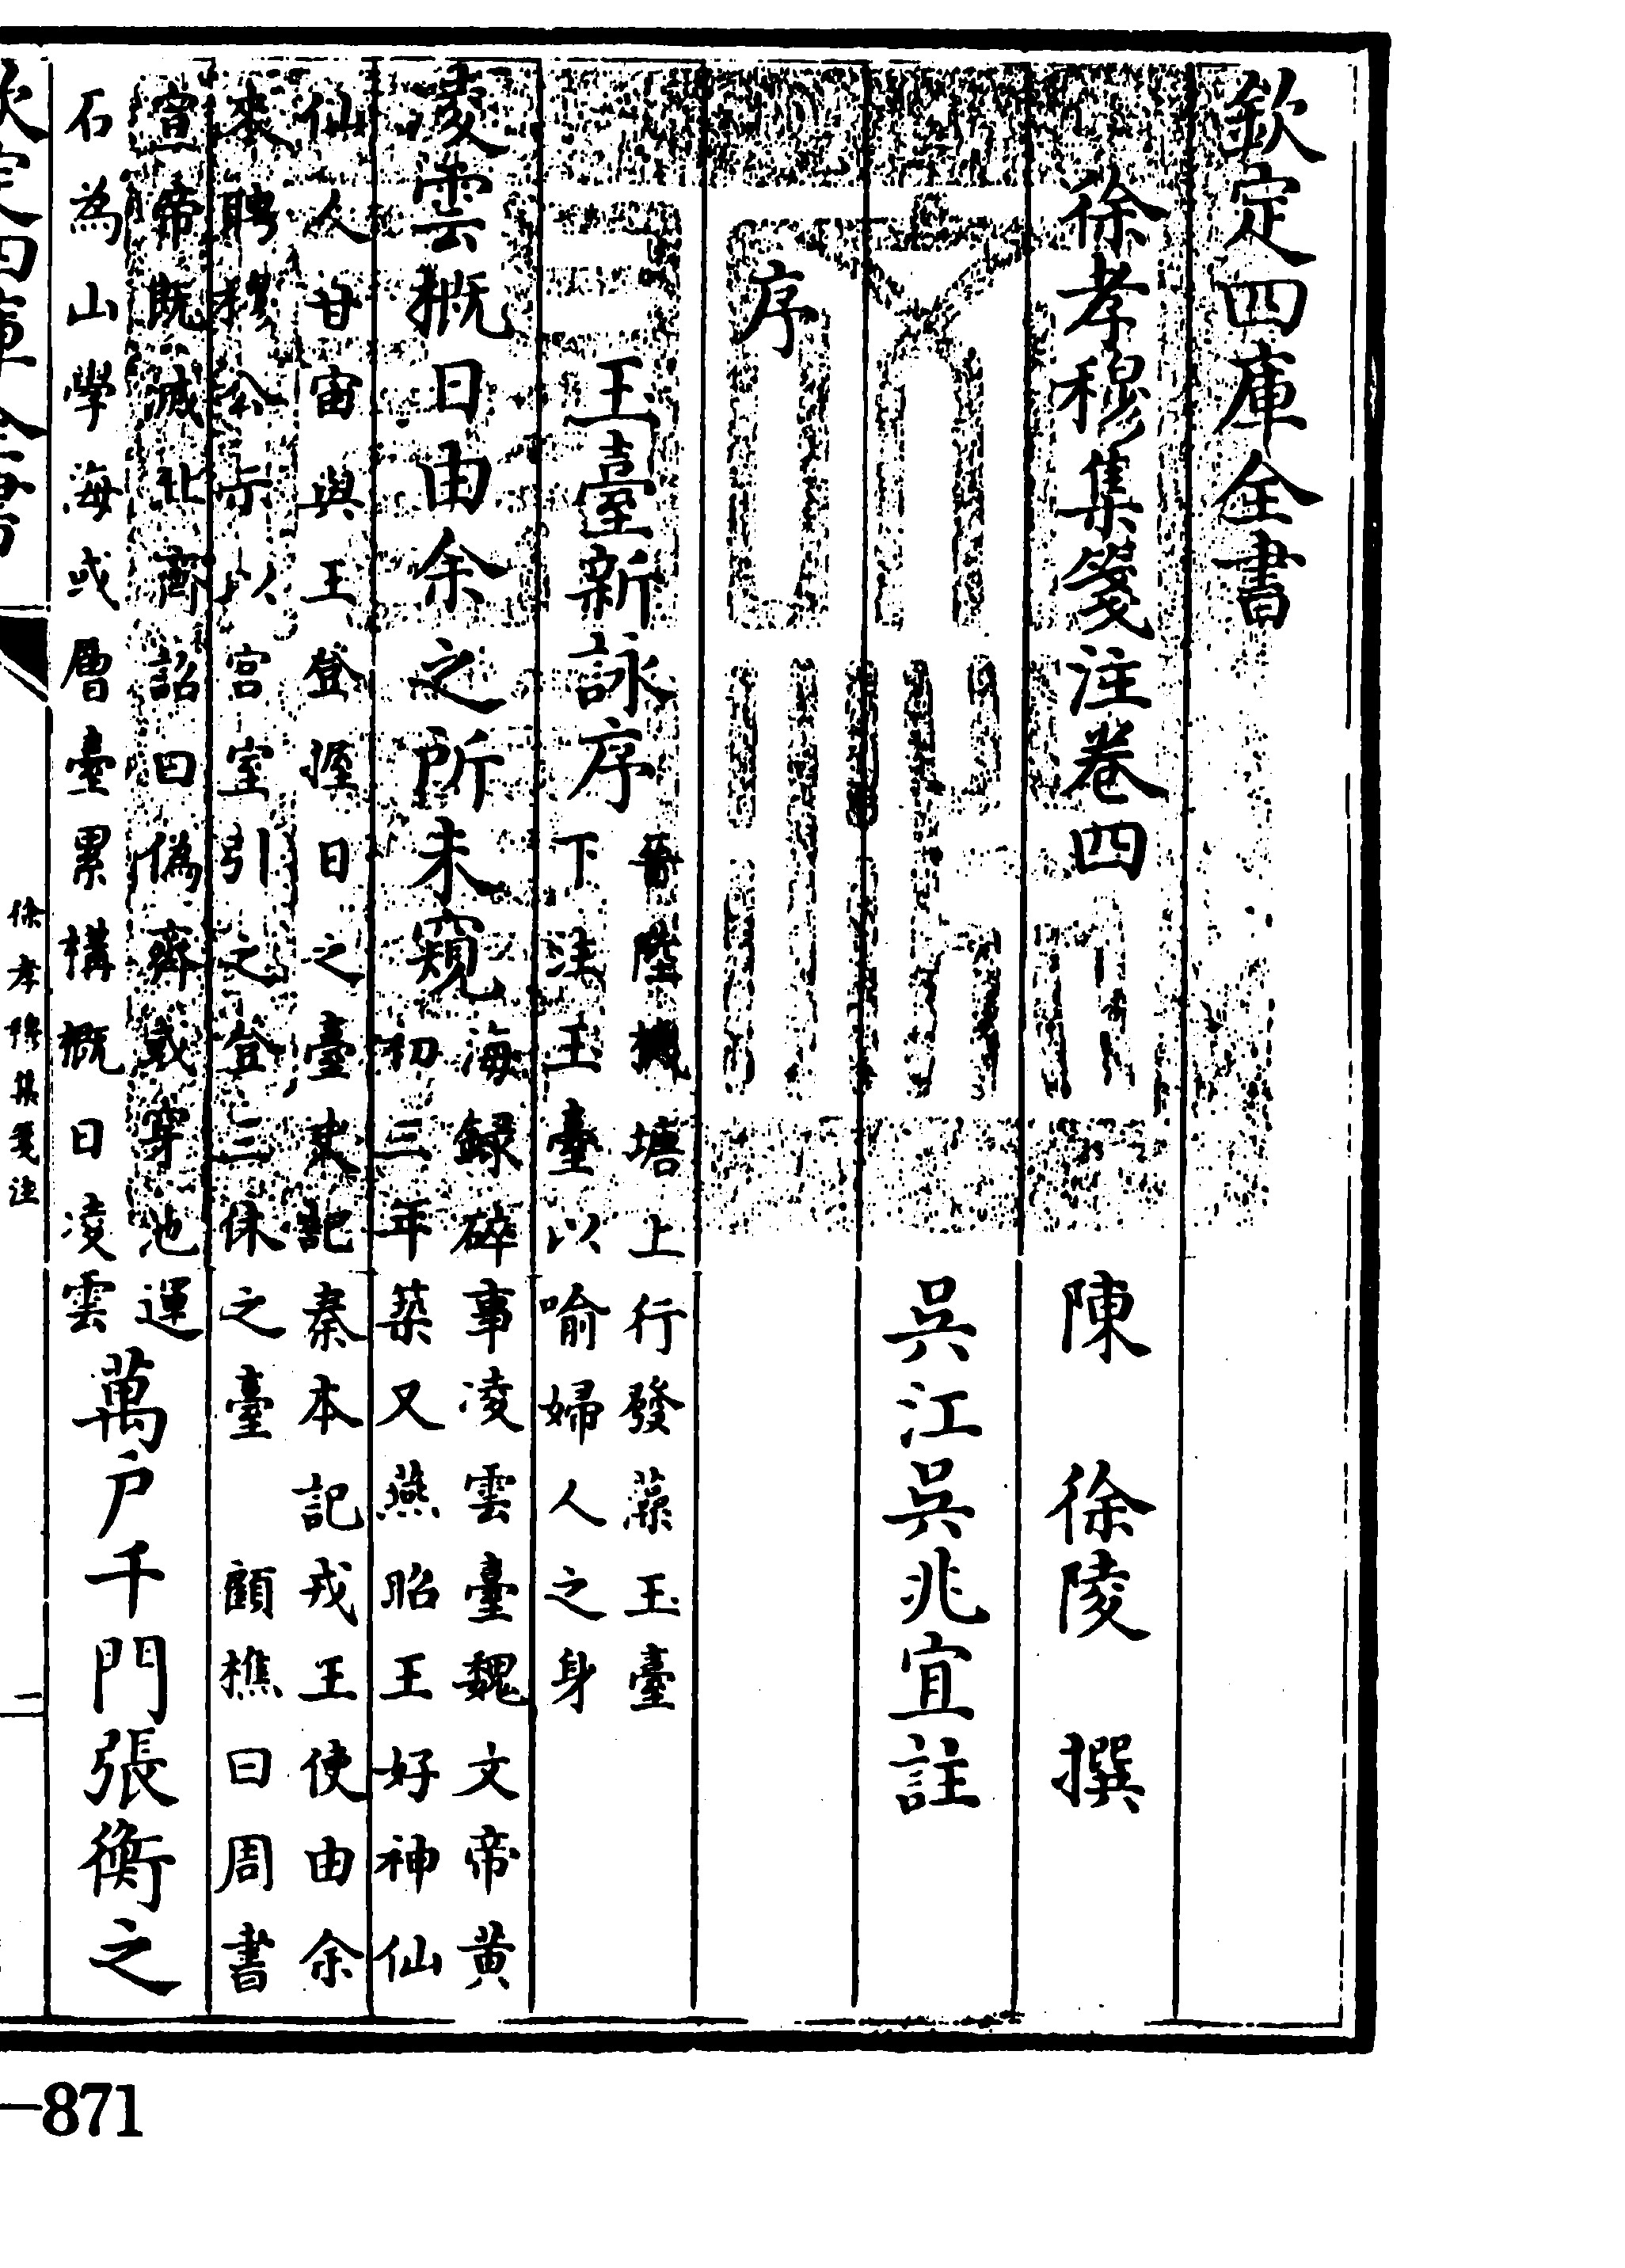 欽定四庫全書
徐孝穆集箋注卷四
陳　徐陵　撰
吳江吳兆宜註
序
玉臺新詠序
晉陸機塘上行發藻玉臺
下注玉臺以喻婦人之身
凌雲概日由余之所未窺
海録碎事凌雲臺魏文帝黄
初三年築又燕昭王好神仙
仙人甘宙與王登握日之臺史記秦本記戎王使由余
來聘穆公示以宫室引之登三休之臺　顧樵曰周書
宣帝既滅北齊詔曰偽齊或穿池運
石為山學海或層臺累構概日凌雲
萬户千門張衡之
徐孝穆集箋注
一
871